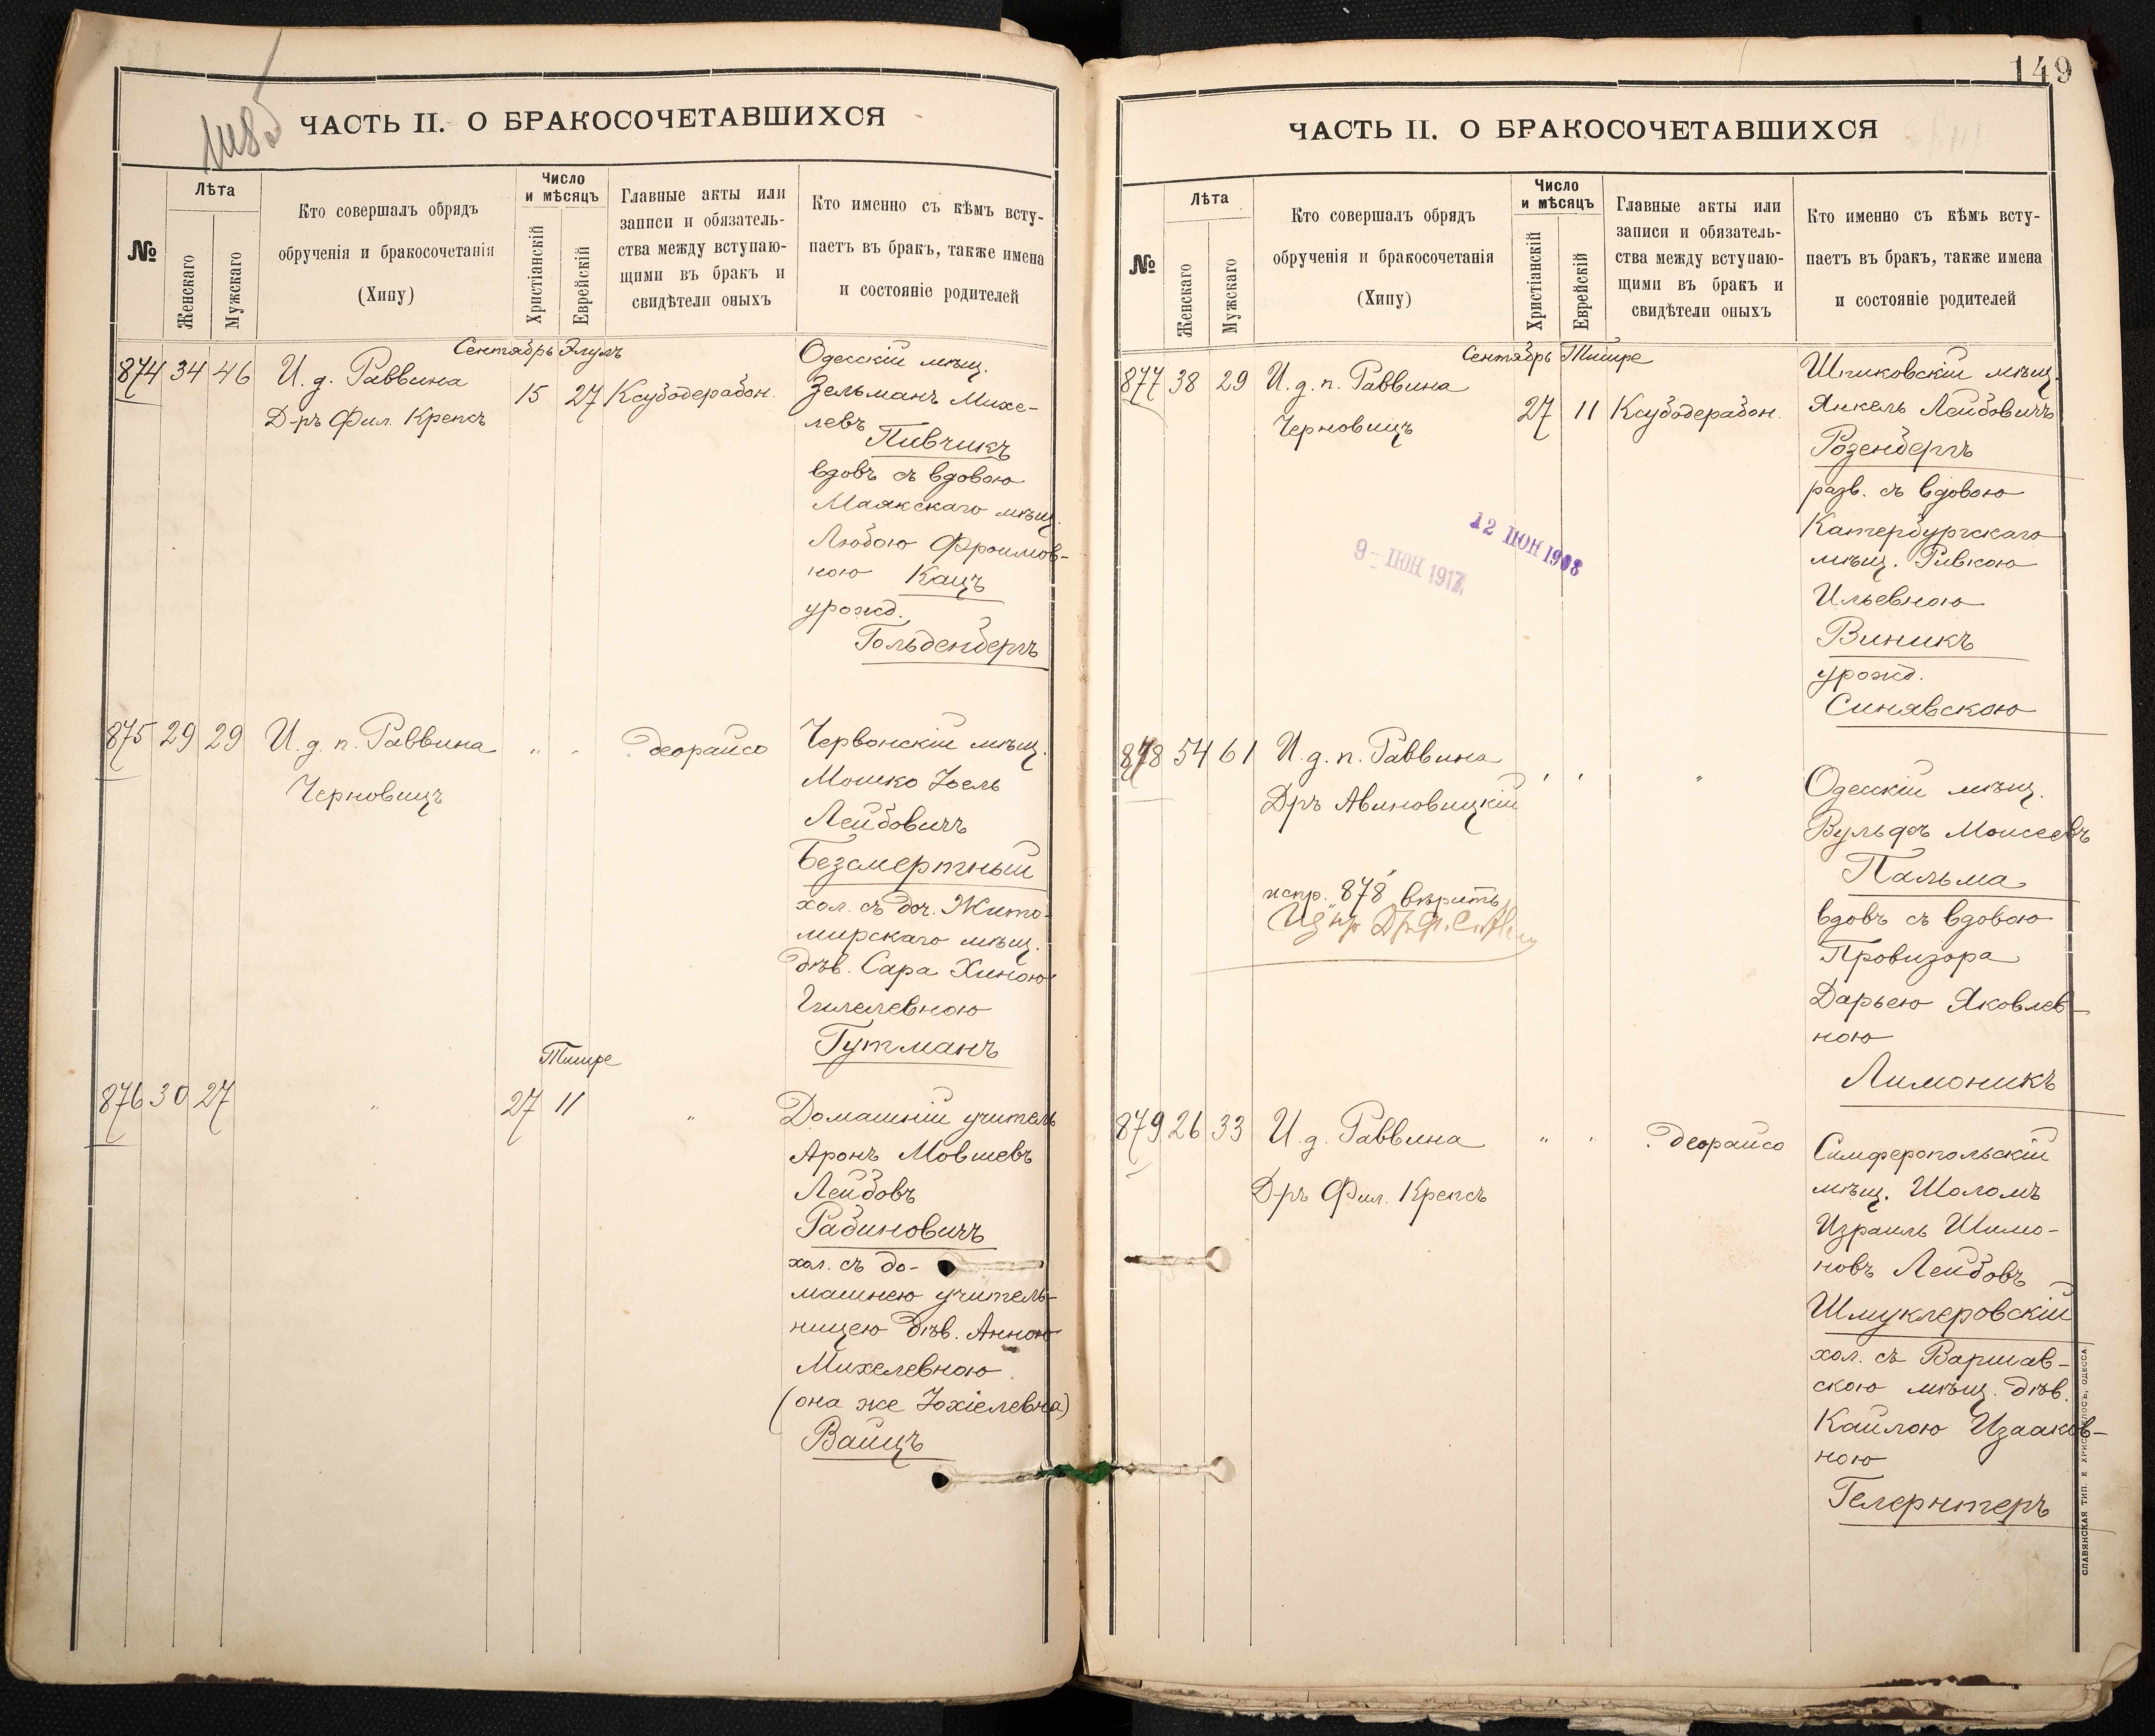 ЧАСТЬ II. О БРАКОСОЧЕТАВШИХСЯ
№
Лѣта
Женскаго
Мужскаго
Кто совершалъ обрядъ
обрученія и бракосочетанія
(Хипу)
Число
и мѣсяцъ
Христіанскій
Еврейскій
Главные акты или
записи и обязатель-
ства между вступаю-
щими въ бракъ и
свидѣтели оныхъ
Кто именно съ кѣмъ всту-
паетъ въ бракъ, также имена
и состояніе родителей
Сентябрь Элулъ
874 34 46 И. д. Раввина
Д-ръ Фил. Крепсъ
15 27 Ксубодерабон.
Одесскій мѣщ.
Зельманъ Михе-
левъ
Пивчикъ
вдовъ съ вдовою
Маякскаго мѣщ.
Любою Фроимов-
ною Кацъ
урожд.
Гольденбергъ
875 29 29 И. д. п. Раввина
Черновицъ
" " деорайсо
Червонскій мѣщ.
Мошко Іоель
Лейбовичъ
Безсмертный
хол. съ доч. Жито-
мирскаго мѣщ.
дѣв. Сара Хиною
Гилелевною
Гутманъ
Тишре
876 30 27 " 27 11 "
Домашній учитель
Аронъ Мовшевъ
Лейбовъ
Рабиновичъ
хол. съ до-
машнею учитель-
ницею дѣв. Анною
Михелевною
(она же Іохіелевна)
Вайцъ
149
ЧАСТЬ II. О БРАКОСОЧЕТАВШИХСЯ
№
Лѣта
Женскаго
Мужскаго
Кто совершалъ обрядъ
обрученія и бракосочетанія
(Хипу)
Число
и мѣсяцъ
Христіанскій
Еврейскій
Главные акты или
записи и обязатель-
ства между вступаю-
щими въ бракъ и
свидѣтели оныхъ
Кто именно съ кѣмъ всту-
паетъ въ бракъ, также имена
и состояніе родителей
Сентябрь Тишре
877 38 29 И. д. п. Раввина
Черновицъ
27 11 Ксубодерабон.
Шпиковскій мѣщ.
Янкель Лейбовичъ
Розенбергъ
разв. съ вдовою
Катербургскаго
мѣщ. Ривкою
Ильевною
Виникъ
урожд.
Синявскою
12 ІЮН 1908
9 – ІЮН 1917
878 54 61 И. д. п. Раввина
Дръ Авиновицкій
" " "
испр. "878" вѣрить
Одесскій мѣщ.
Вульфъ Моисеевъ
Пальма
вдовъ съ вдовою
Провизора
Дарьею Яковлев-
ною
Лимоникъ
879 26 33 И. д. Раввина
Д-ръ Фил. Крепсъ
" " деорайсо
Симферопольскій
мѣщ. Шоломъ
Израиль Шимо-
новъ Лейбовъ
Шмуклеровскій
хол. съ Варшав-
скою мѣщ. дѣв.
Кайлою Изааков-
ною
Гелернтеръ